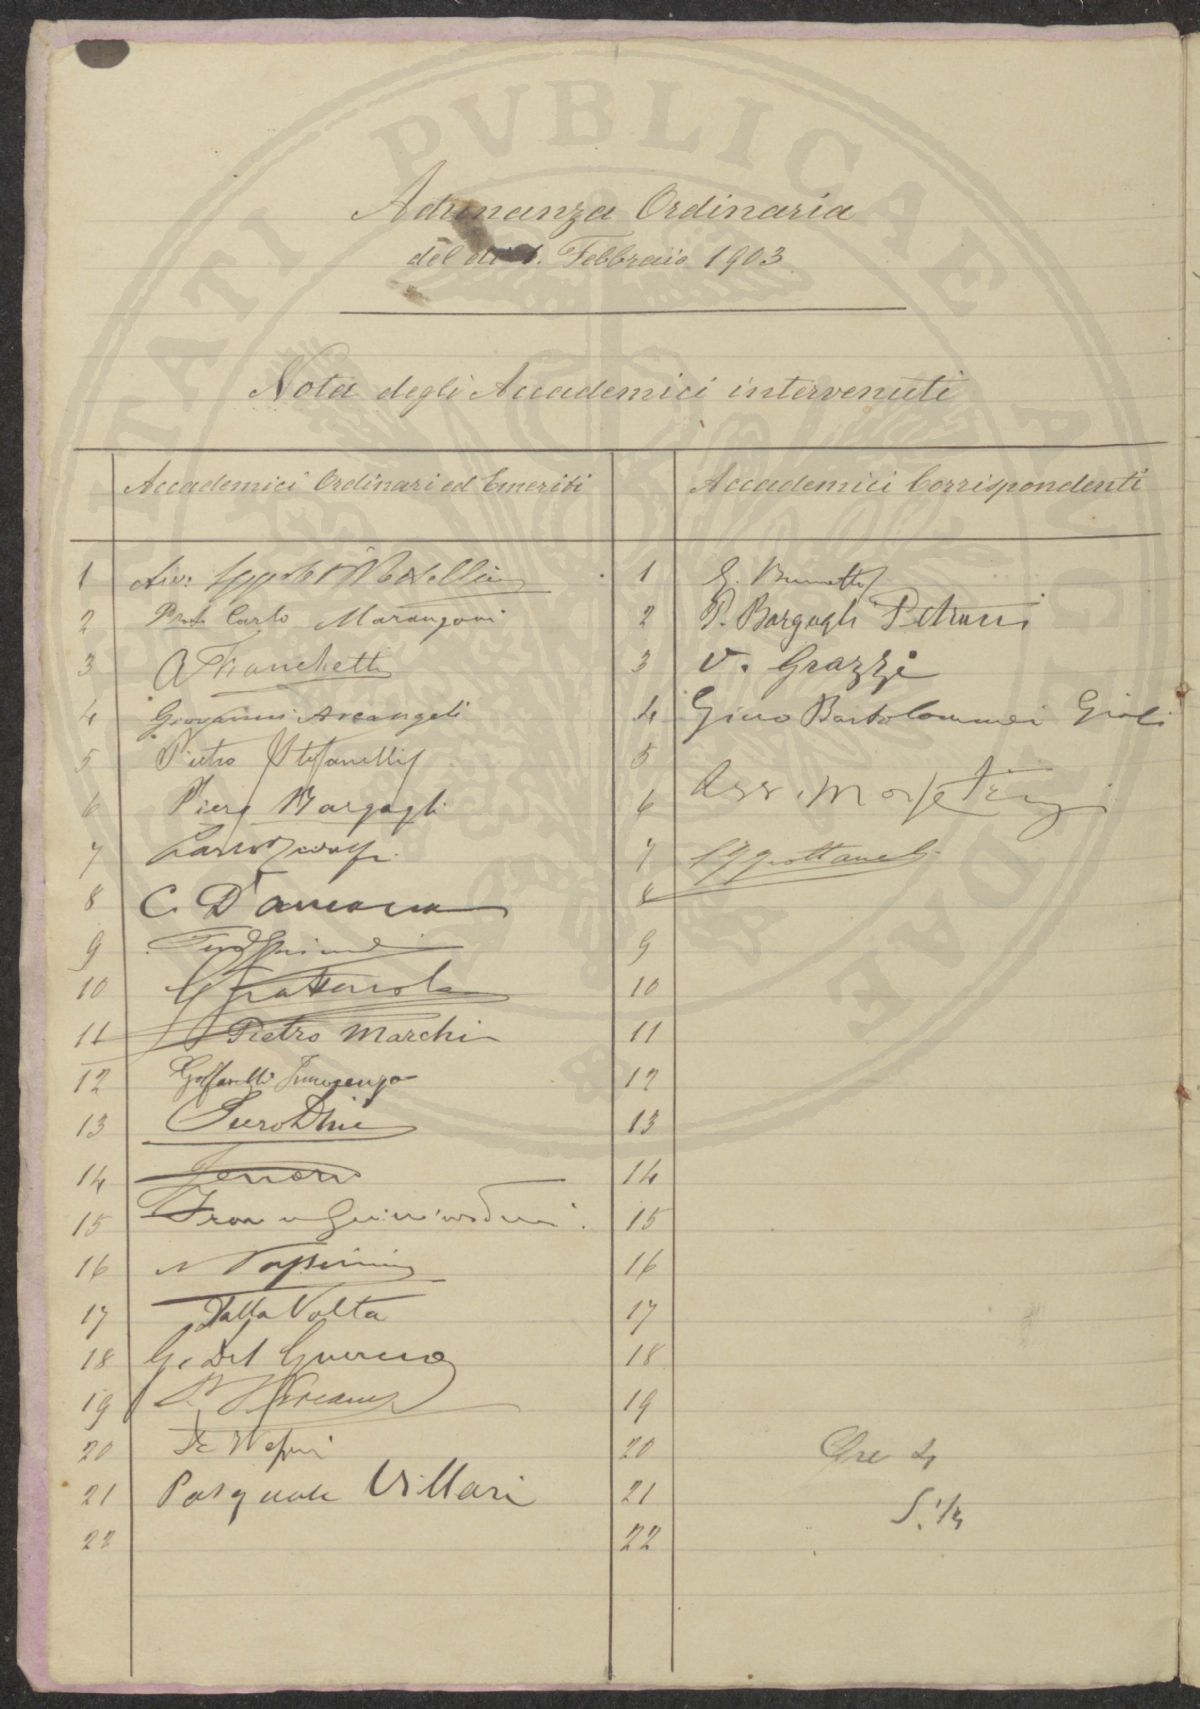 PUBLICAE
Adunanza Ordinaria
del dì 1. Febbraio 1903
Nota degli Accademici intervenuti
Accademici Ordinari ed Emeriti
1
2 Prof. Carlo Marangoni
3 A Franchetti
4 Giovanni Arcangeli
5 Pietro Stefanelli
6 Piero Bargagli
7
8 C. D'Ancona
9
10
11 Pietro Marchi
12 Golfarelli Innocenzo
13 Piero Dini
14
15
16 N Passerini
17 Dalla Volta
18 G. Del Guercio
19
20
21 Pasquale Villari
22
Accademici Corrispondenti
1 G. Brunetti
2 P. Bargagli Petrucci
3 V. Grazzi
4 Gino Bartolommei Gioli
5
6
7
8
9
10
11
12
13
14
15
16
17
18
19
20
21
22
Ore 4
5. 1/4